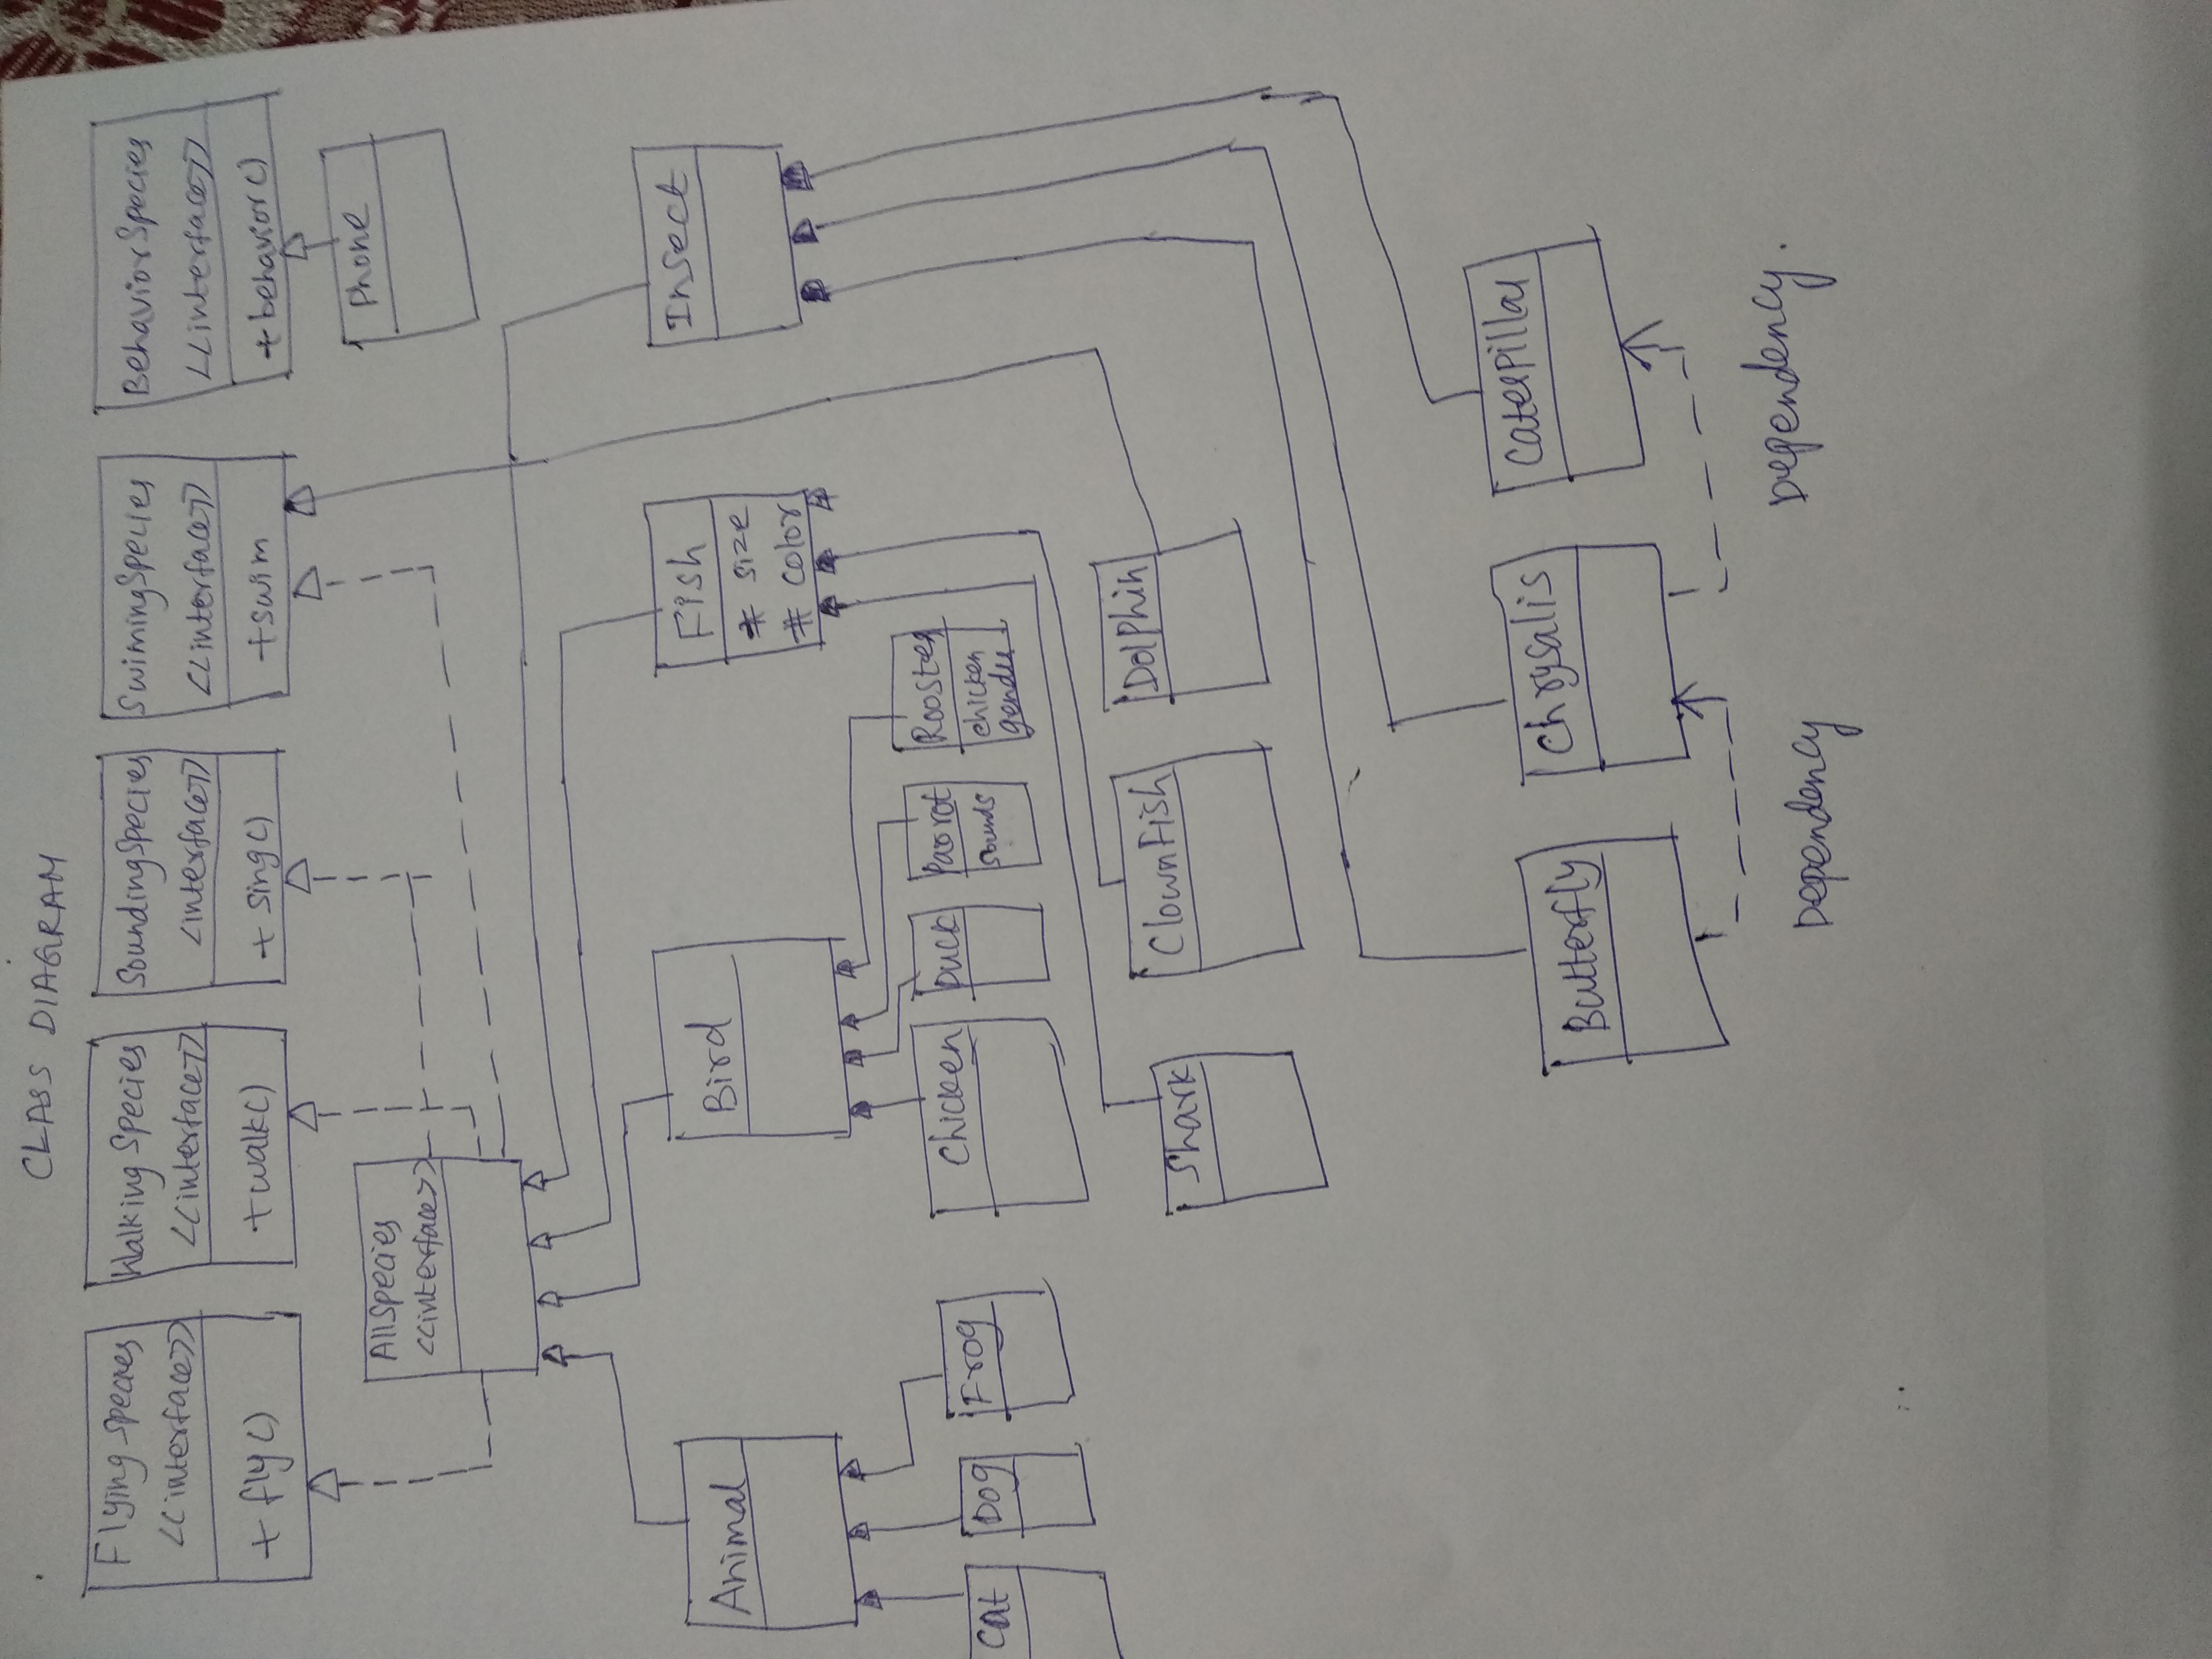 CLASS DIAGRAM
Flying Species
<<interface>>
+ fly()
Walking Species
<<interface>>
+walk()
SoundingSpecies
<interface>>
+ sing()
SwimingSpecies
<<interface>>
+swim
BehaviorSpecies
<<interface>>
+behavior()
Phone
AllSpecies
<<interface>>
Animal
Bird
Fish
# size
# color
Insect
Cat
Dog
Frog
Chicken
Duck
Parrot
Sounds
Rooster
chicken
gender
Shark
ClownFish
Dolphin
Butterfly
Chrysalis
Caterpillar
Dependency
Dependency.